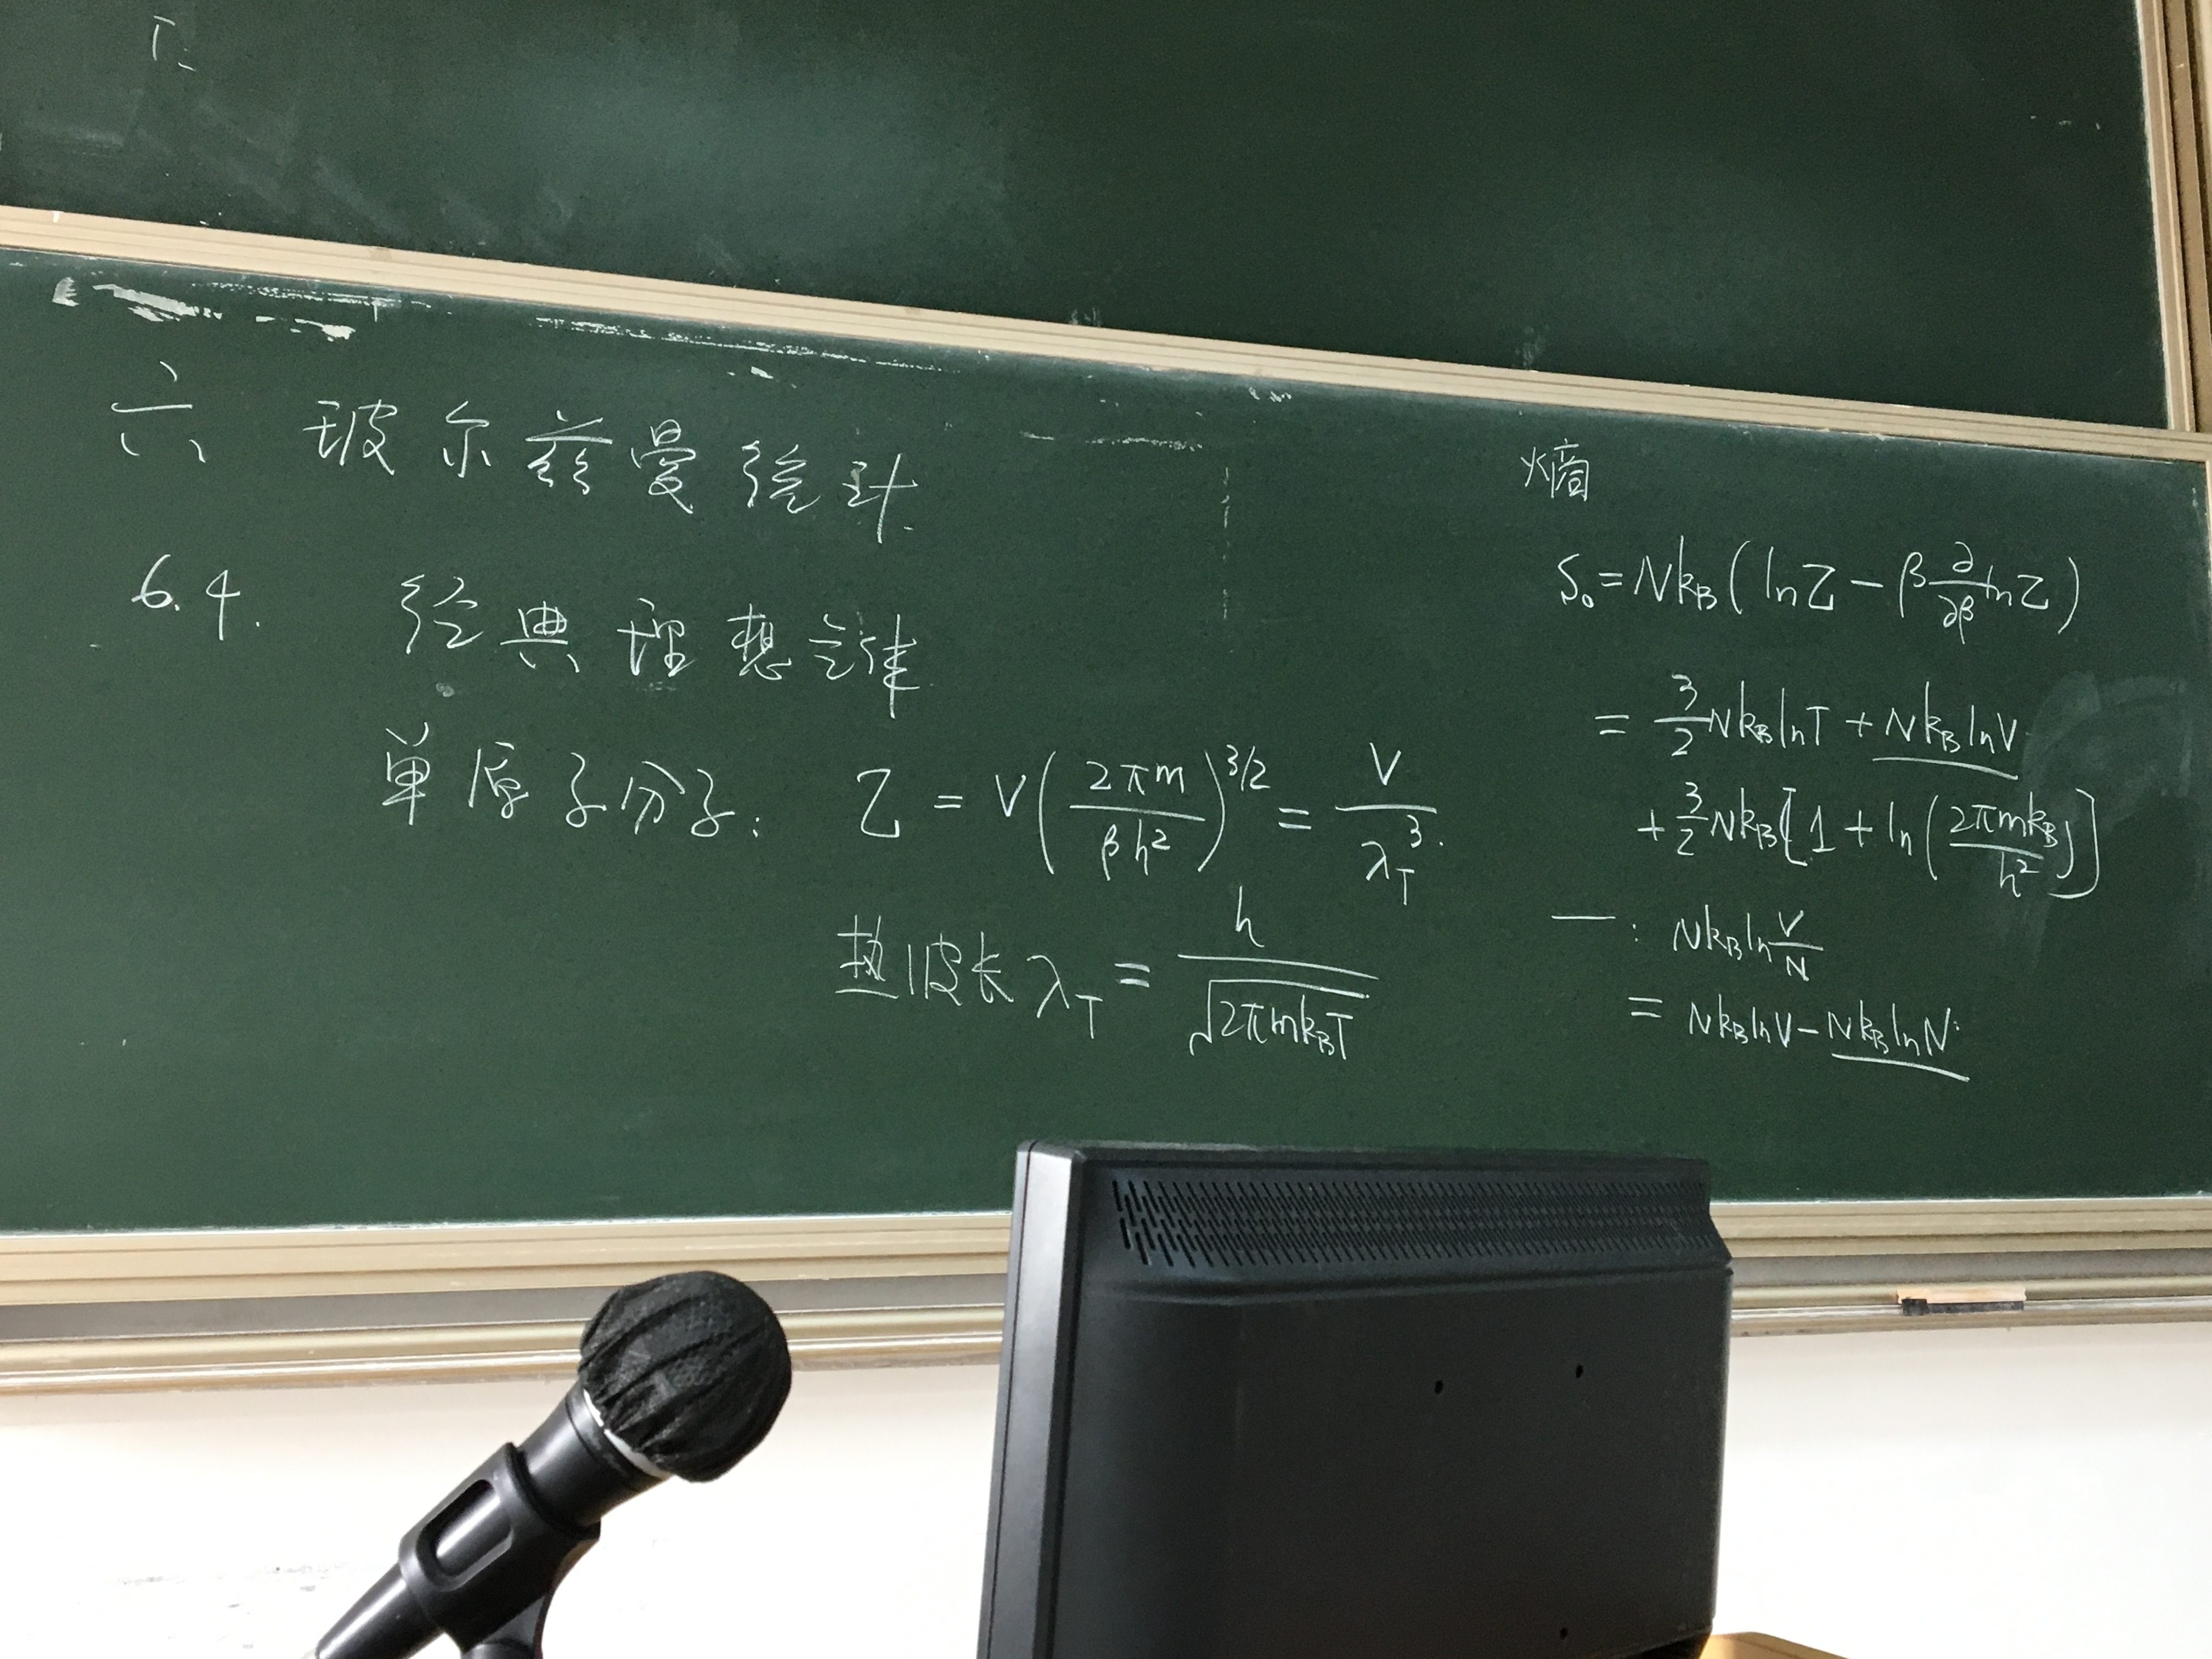 T
六 玻尔兹曼统计
6.4. 经典理想气体
单原子分子: Z = V(2πm/βh²)^{3/2} = V/λ_T³.
热波长 λ_T = h/√(2πmk_BT)
熵
S₀ = Nk_B(lnZ − β ∂/∂β lnZ)
= 3/2 Nk_B lnT + Nk_B lnV
+ 3/2 Nk_B[1 + ln(2πmk_B/h²)]
— : Nk_B ln V/N
= Nk_B lnV − Nk_B lnN.